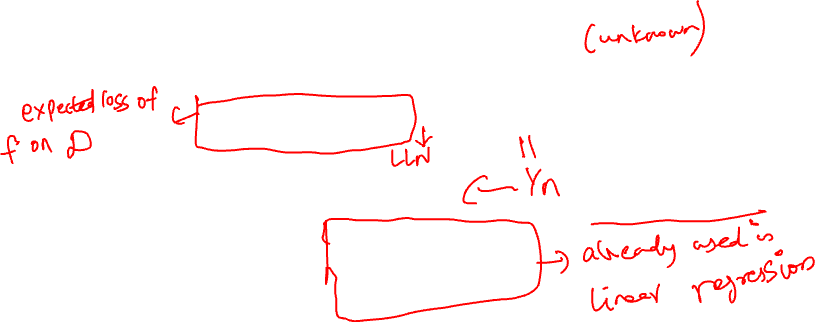 (unknown)
expected loss of
f on D
LLN
Yn
already used in
linear regression